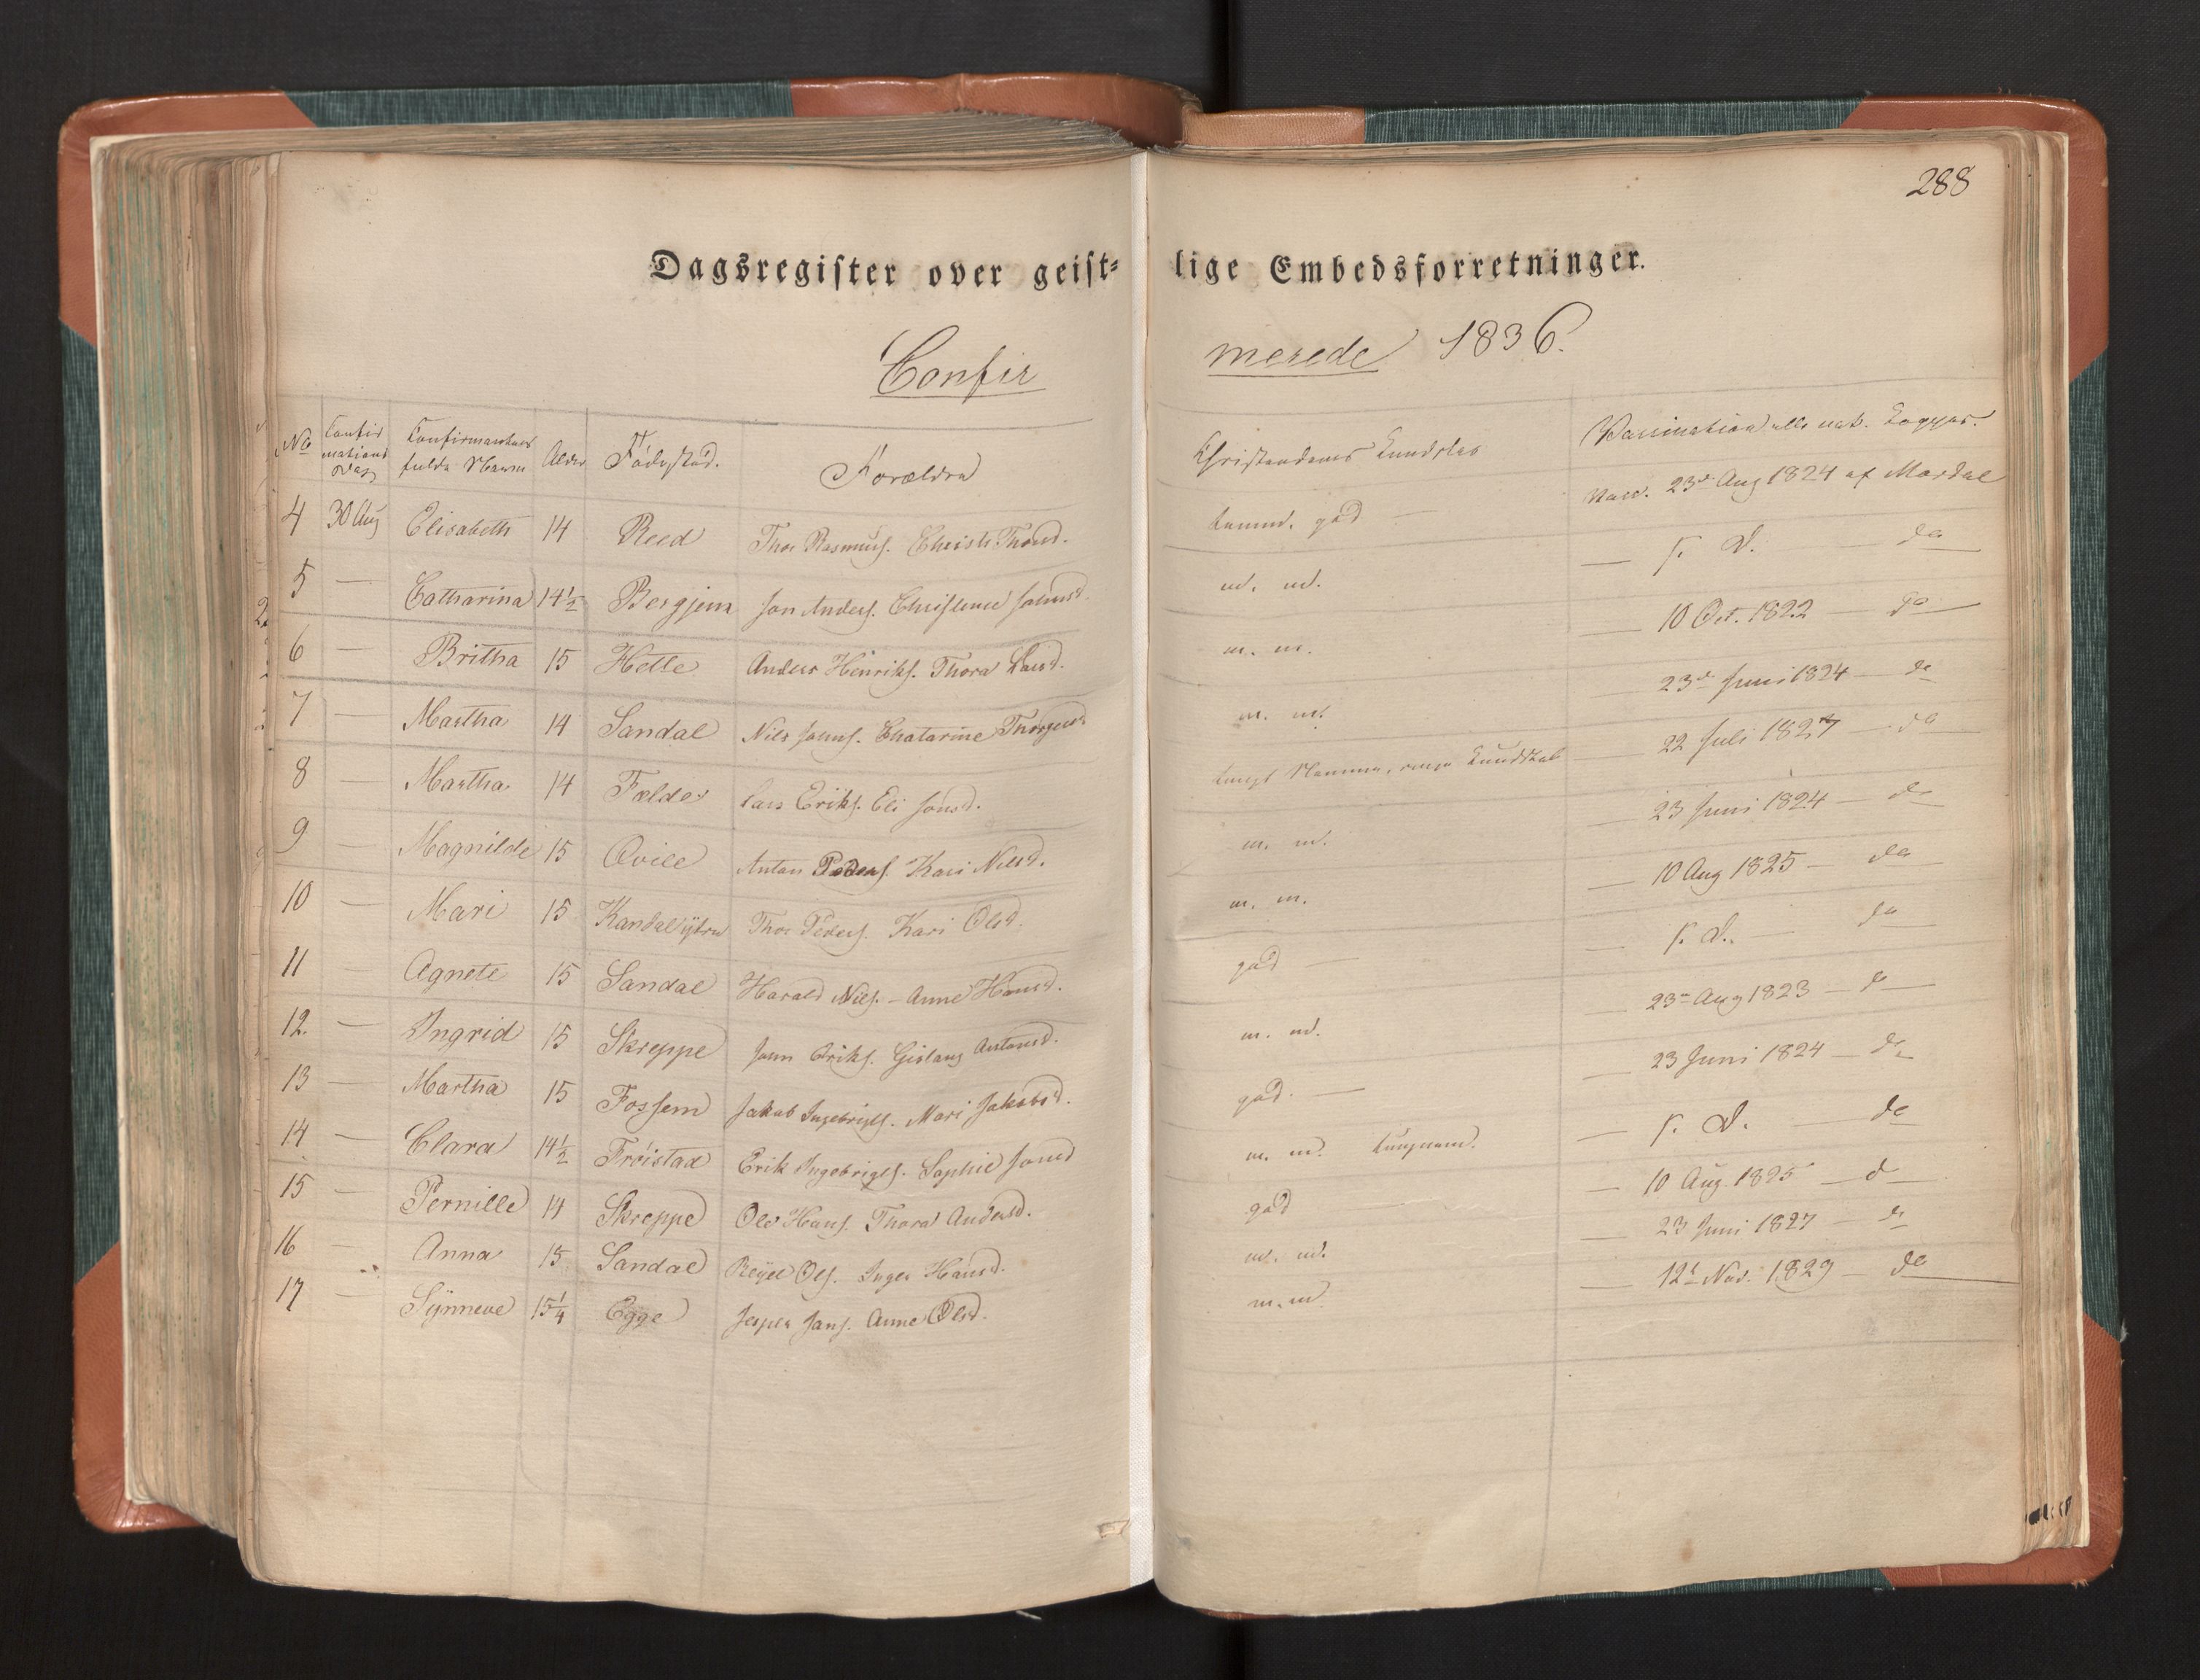 288
Dagsregister over geist= lige Embedsforretninger.
Confir merede 1836.
No Confirmations Dag Confirmantens fulde Navn Alder Fødested. Forældre Christendoms Kundskab Vaccination eller nat. Kopper.
4 30 Aug Elisabeth 14 Reed Thor Rasmus. Christi Thord. god — Vacc. 23d Aug 1824 af Mardal
5 — Catharina 14½ Bergjem Jon Anders. Christense m. m. — s. D. — do
6 — Britha 15 Hetle Anders Henriks. Thora Larsd. m. m. — 10 Oct. 1822 — do
7 — Martha 14 Sandal Nils Johns. Chatarine m. m. — 23d Juni 1824 — do
8 — Martha 14 Felde Lars Eriks. Eli Jonsd. Kundskab — 22 Juli 1827 — do
9 — Magnilde 15 Qvile Anton Peders. Kari Nilsd. m. m. — 23 Juni 1824 — do
10 — Mari 15 Kandal ÿtre Thor Peders. Kari Olsd. m. m. — 10 Aug 1825 — do
11 — Agnete 15 Sandal Harald Nils. – Anne Hansd. god — — s. D. — do
12. — Ingrid 15 Skreppe John Eriks. Gislaug Antonsd. m. m. — 23de Aug 1823 — do
13 — Martha 15 Fossem Jakob Ingebrigts. Mari Jakobsd. god. — — 23 Juni 1824 — do
14 — Clara 14½ Fröistad Erik Ingebrigts. Sophie Jonsd m. m. — s. D. — do
15 — Pernille 14 Skreppe Ole Hans. Thora Andersd. god — 10 Aug. 1825 — do
16 — Anna 15 Sandal Reÿel Ols. Inger Hansd. m. m. — 23 Juni 1827 — do
17 — Sÿnneve 15¼ Egge Jesper Jans. Anne Olsd. m. m — 12t Nov. 1829 — do